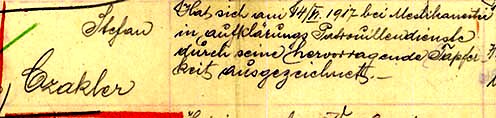 Stefan
Czakler
Hat sich am 14/VI. 1917 bei Mestikanestie
in aufklärungs Patrouillendienste
durch seine hervorragende Tapfer
keit ausgezeichnet.—